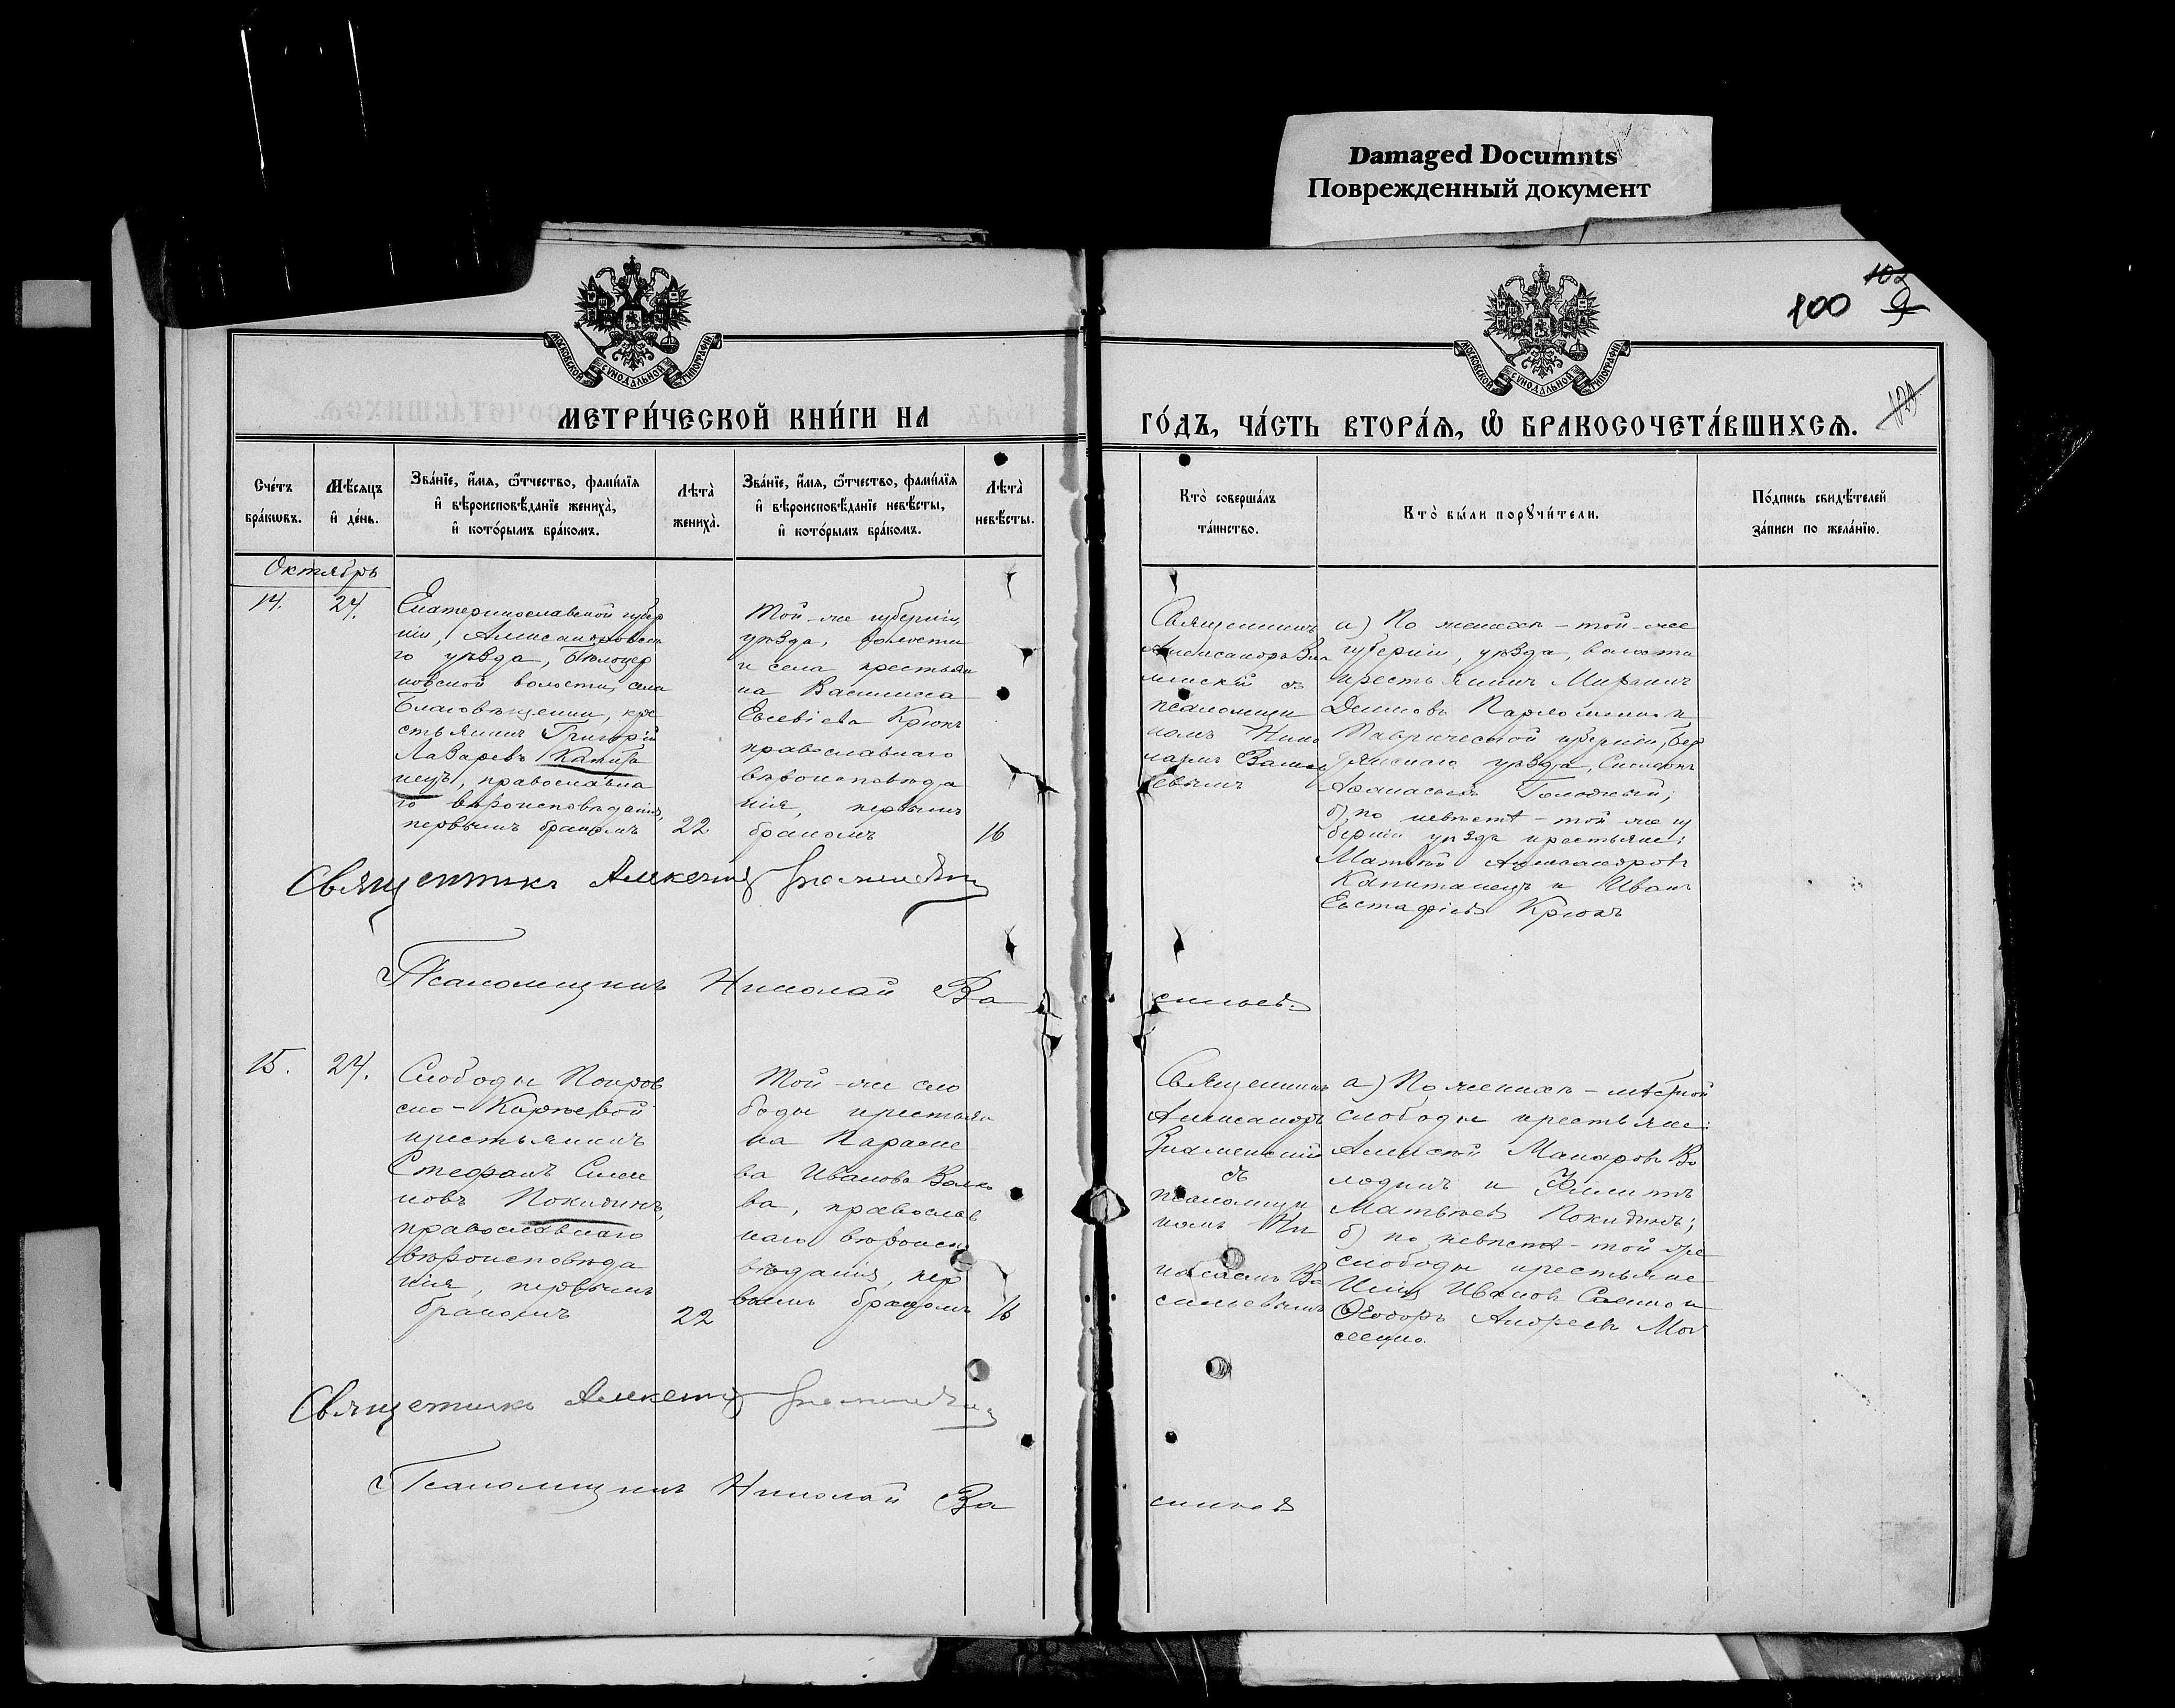 Damaged Documnts
Поврежденный документ
100
102
МОСКОВСКОЙ СУНОДАЛЬНОЙ ТИПОГРАФІИ
МОСКОВСКОЙ СУНОДАЛЬНОЙ ТИПОГРАФІИ
МЕТРИ́ЧЕСКОЙ КНИ́ГИ НА
ГО́ДЪ, ЧА́СТЬ ВТОРА́Ѧ, Ѡ҆ БРАКОСОЧЕТА́ВШИХСѦ.
Сче́тъ
бра́кѡвъ.
Мѣ́сяцъ
и҆ де́нь.
Зва́нїе, и҆́мѧ, ѻ҆́тчество, фами́лїѧ
и҆ вѣроисповѣ́данїе жениха̀,
и҆ кото́рымъ бра́комъ.
Лѣта̀
жениха̀.
Зва́нїе, и҆́мѧ, ѻ҆́тчество, фами́лїѧ
и҆ вѣроисповѣ́данїе невѣ́сты,
и҆ кото́рымъ бра́комъ.
Лѣта̀
невѣ́сты.
Кто̀ соверша́лъ
та́инство.
Кто̀ бы́ли порꙋчи́тели.
По́дпись свидѣ́телей
за́писи по жела́нїю.
Октябрь
14.
24.
Екатеринославской губер
ніи, Александровска
го уѣзда, Бѣлоцер
ковской волости, села
Благовѣщенки, кре
стьянинъ Григорій
Лазаревъ Капита
нецъ, православна
го вѣроисповѣданія,
первымъ бракомъ
22
Той-же губерніи,
уѣзда, волости
и села крестьян
ка Василисса
Евсевіева Крюкъ
православнаго
вѣроисповѣда
нія, первымъ
бракомъ
16
Священникъ
Александръ Зна
менскій съ
псаломщи
комъ Нико
лаемъ Василь
евымъ
а) По женихѣ - той-же
губерніи, уѣзда, волости
крестьянинъ Миронъ
Денисовъ Пархоменко и
Таврической губерніи, Бер
дянскаго уѣзда, Симеонъ
Аѳанасьевъ Голодный;
б) по невѣстѣ - той же гу
берніи уѣзда крестьяне:
Матѳей Александровъ
Капитанецъ и Иванъ
Евстафіевъ Крюкъ
Священникъ Алексан Знаменскій
Псаломщикъ Николай Ва
сильевъ.
15.
24.
Слободы Покров
ско-Киреевой
крестьянинъ
Стефанъ Симео
новъ Покидинъ,
православнаго
вѣроисповѣда
нія, первымъ
бракомъ
22
Той-же сло
боды крестьян
ка Параске
ва Иванова Волко
ва, православ
наго вѣроиспо
вѣданія, пер
вымъ бракомъ
16
Священникъ
Александръ
Знаменскій
съ
псаломщи
комъ Ни
колаемъ Ва
сильевымъ
а) По женихѣ - мѣстной
слободы крестьяне:
Алексѣй Макаровъ Во
лодинъ и Филиппъ
Матвѣевъ Покидинъ;
б) по невѣстѣ - той же
слободы крестьяне
Илія Ивановъ и
Ѳеодоръ Андреевъ Мои
сеенко.
Священникъ Алексан Знаменскій
Псаломщикъ Николай Ва
сильевъ